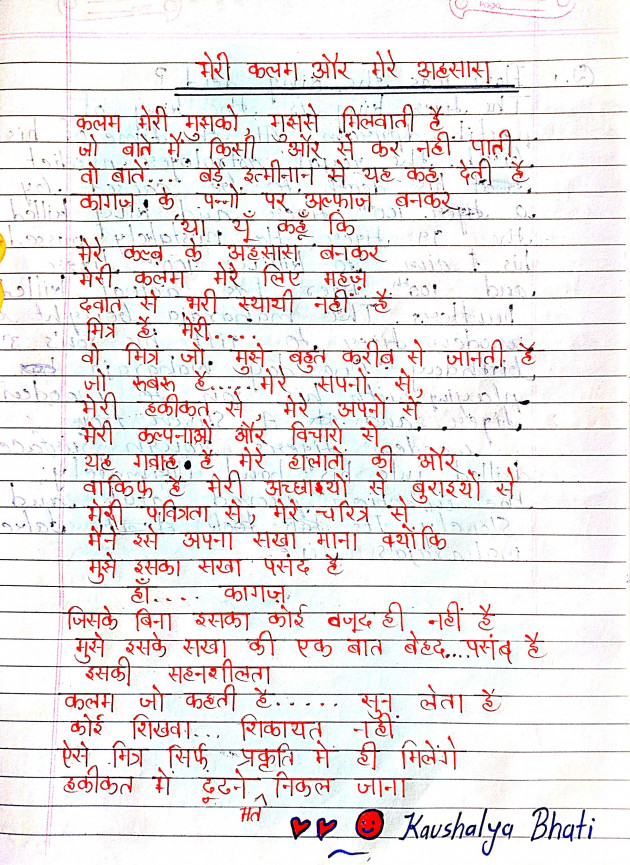 मेरी कलम और मेरे अहसास
कलम मेरी मुझको, मुझसे मिलवाती है
जो बातें मैं किसी और से कर नहीं पाती
वो बातें.... बड़े इत्मीनान से यह कह देती है
कागज़ के पन्नों पर अल्फाज़ बनकर
या यूँ कहूँ कि
मेरे कल्ब के अहसास बनकर
मेरी कलम मेरे लिए महज़
दवात से भरी स्यायी नहीं है
मित्र है मेरी.....
वो मित्र जो मुझे बहुत करीब से जानती है
जो रुबरु है.....मेरे सपनो से,
मेरी हकीकत से, मेरे अपनो से
मेरी कल्पनाओं और विचारो से
यह गवाह है मेरे हालातो की और
वाकिफ़ है मेरी अच्छाइयों से बुराइयों से
मेरी पवित्रता से, मेरे चरित्र से
मैंने इसे अपना सखा माना क्योंकि
मुझे इसका सखा पसंद है
हाँ.... कागज़
जिसके बिना इसका कोई वजूद ही नहीं है
मुझे इसके सखा की एक बात बेहद...पसंद है
इसकी सहनशीलता
कलम जो कहती है...... सुन लेता है
कोई शिखवा... शिकायत नहीं
ऐसे मित्र सिर्फ प्रकृति में ही मिलेंगे
हकीकत में ढूंढने मत निकल जाना
Kaushalya Bhati